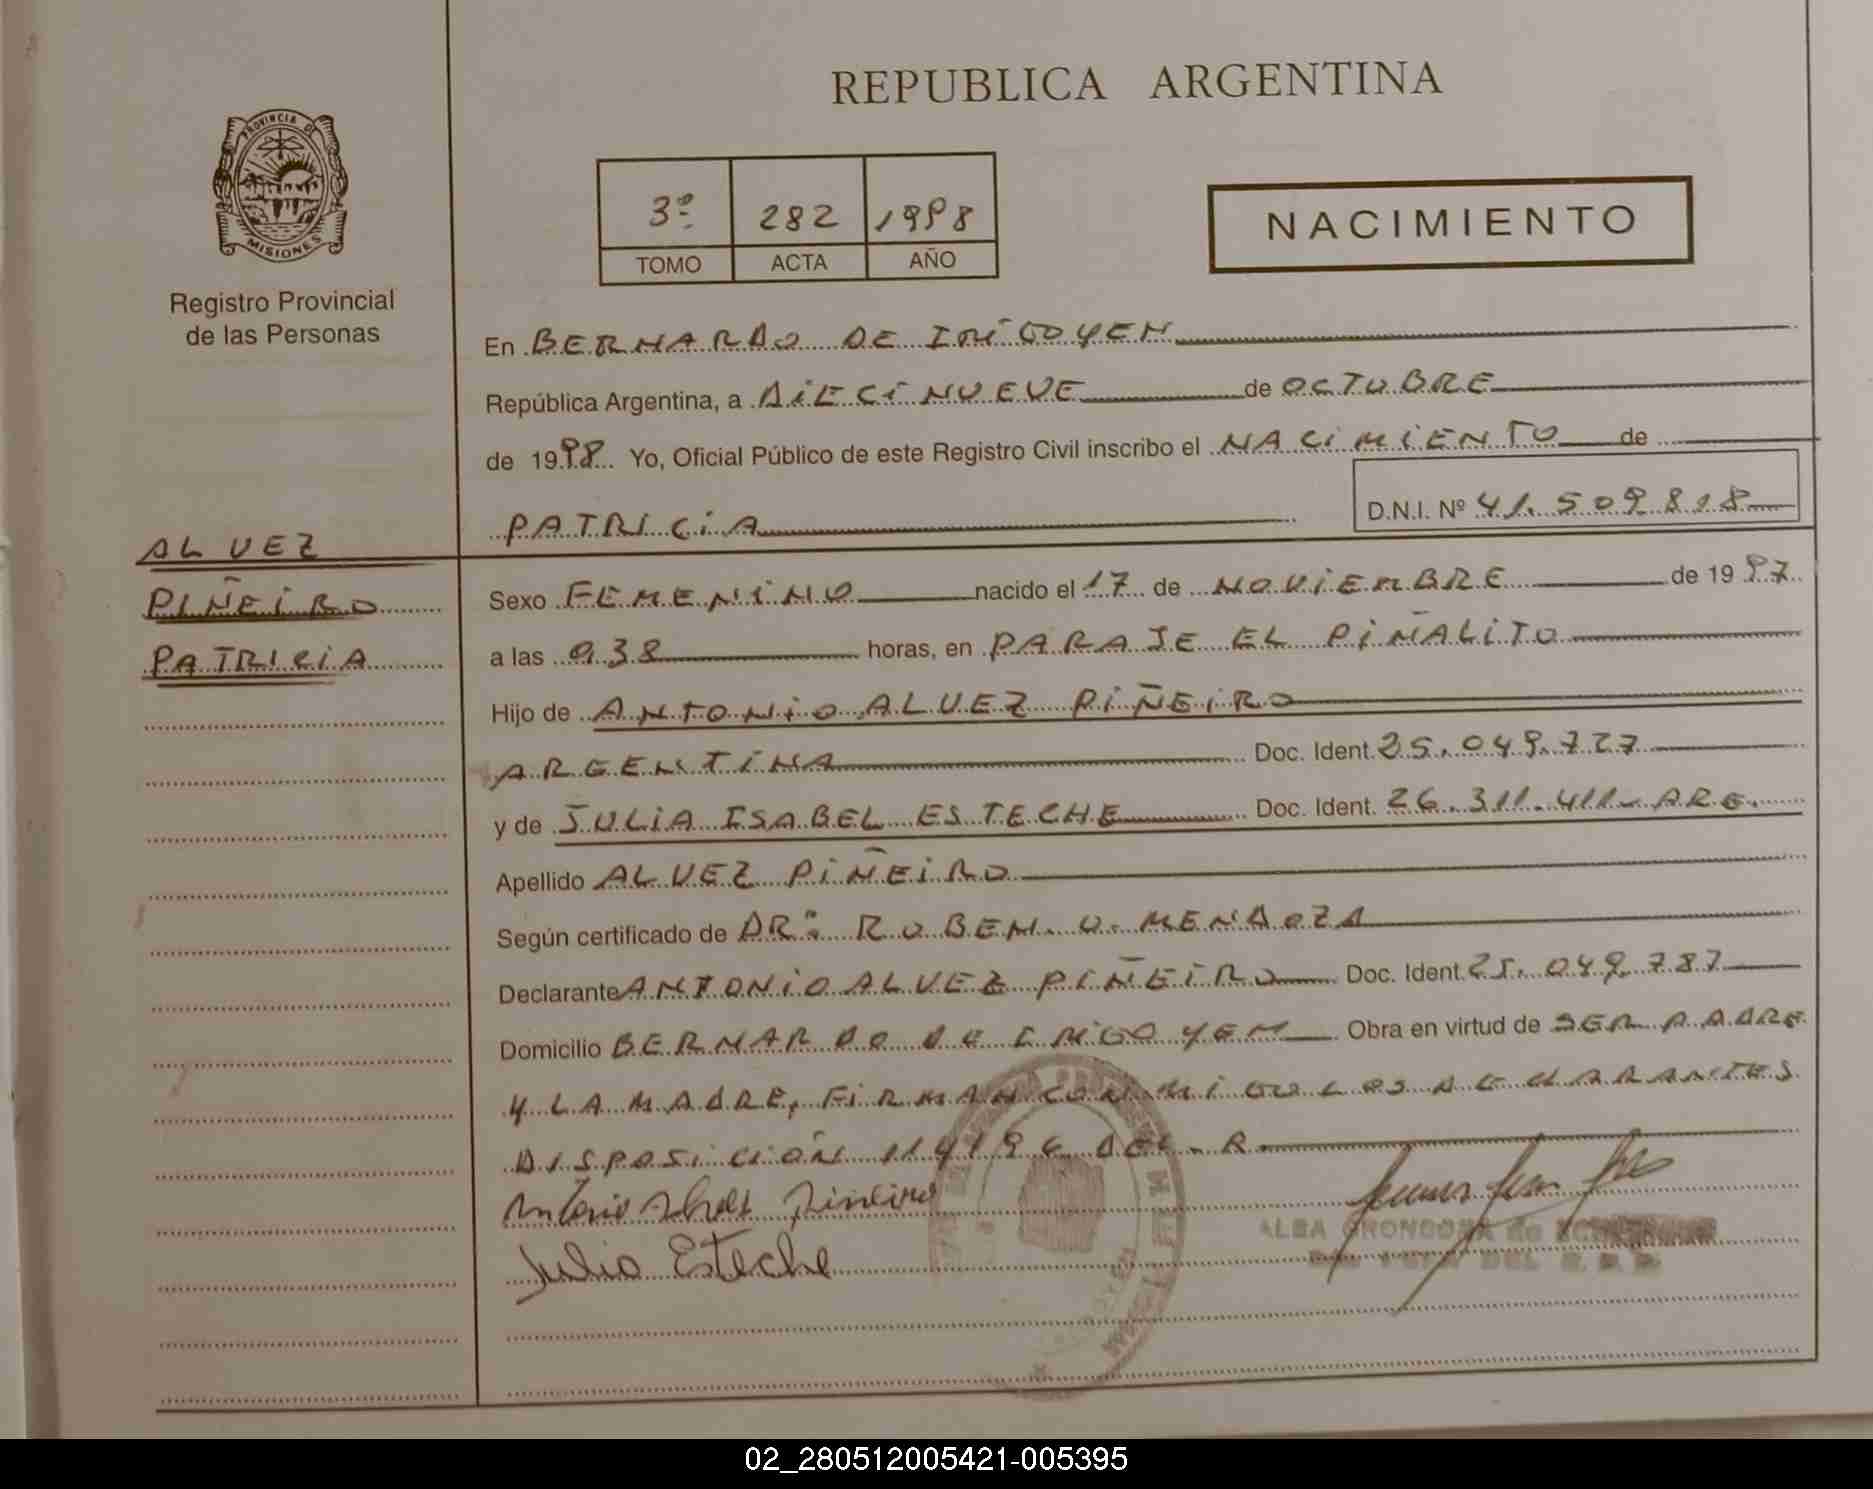 REPUBLICA ARGENTINA
PROVINCIA DE
MISIONES
Registro Provincial
de las Personas
3º 282 1998
TOMO ACTA AÑO
NACIMIENTO
En BERNARDO DE IRIGOYEN
República Argentina, a DIECINUEVE de OCTUBRE
de 1998 Yo, Oficial Público de este Registro Civil inscribo el NACIMIENTO de
PATRICIA D.N.I. Nº 41.509.818
ALVEZ
PIÑEIRO
PATRICIA
Sexo FEMENINO nacido el 17 de NOVIEMBRE de 1997
a las 9.38 horas, en PARAJE EL PIÑALITO
Hijo de ANTONIO ALVEZ PIÑEIRO
ARGENTINA Doc. Ident. 25.049.727
y de JULIA ISABEL ESTECHE Doc. Ident. 26.311.411 - ARG.
Apellido ALVEZ PIÑEIRO
Según certificado de DR: RUBEN. O. MENDOZA
Declarante ANTONIO ALVEZ PIÑEIRO Doc. Ident. 25.049.787
Domicilio BERNARDO DE IRIGOYEN Obra en virtud de SER PADRE
Y LA MADRE, FIRMAN CONMIGO LOS DECLARANTES
DISPOSICIÓN 114196 DEL. R
Antonio Alvez Pineiro
Julia Esteche
ALBA GRONDONA de
DEL
02_280512005421-005395